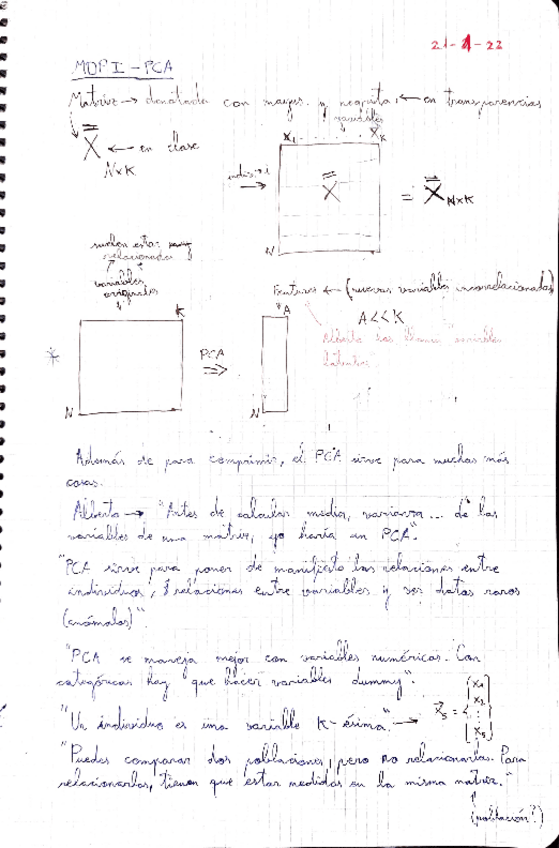 21-1-22
MDP I - PCA
Matriz → denotada con mayus. y negrita. ← en transparencias
X ← en clase
NxK
variables
X1 ... XK
individ. i →
X
= X NxK
N
suelen estar muy
relacionadas
variables
originales
K
Features ← (nuevas variables incorrelacionadas)
A
A << K
Alberto las llama "variables
latentes"
*
PCA
⇒
N
N
Además de para comprimir, el PCA sirve para muchas más
cosas.
Alberto → "Antes de calcular media, varianza... de las
variables de una matriz, yo haría un PCA".
"PCA sirve para poner de manifiesto las relaciones entre
individuos, relaciones entre variables y ver datos raros
(anómalos)".
"PCA se maneja mejor con variables numéricas. Con
categóricas hay que hacer variables dummy".
"Un individuo es una variable K-ésima" → X5 = { X1 X2 ⋮ X5 }
"Puedes comparar dos poblaciones, pero no relacionarlas. Para
relacionarlas, tienen que estar medidas en la misma matriz."
(población?)